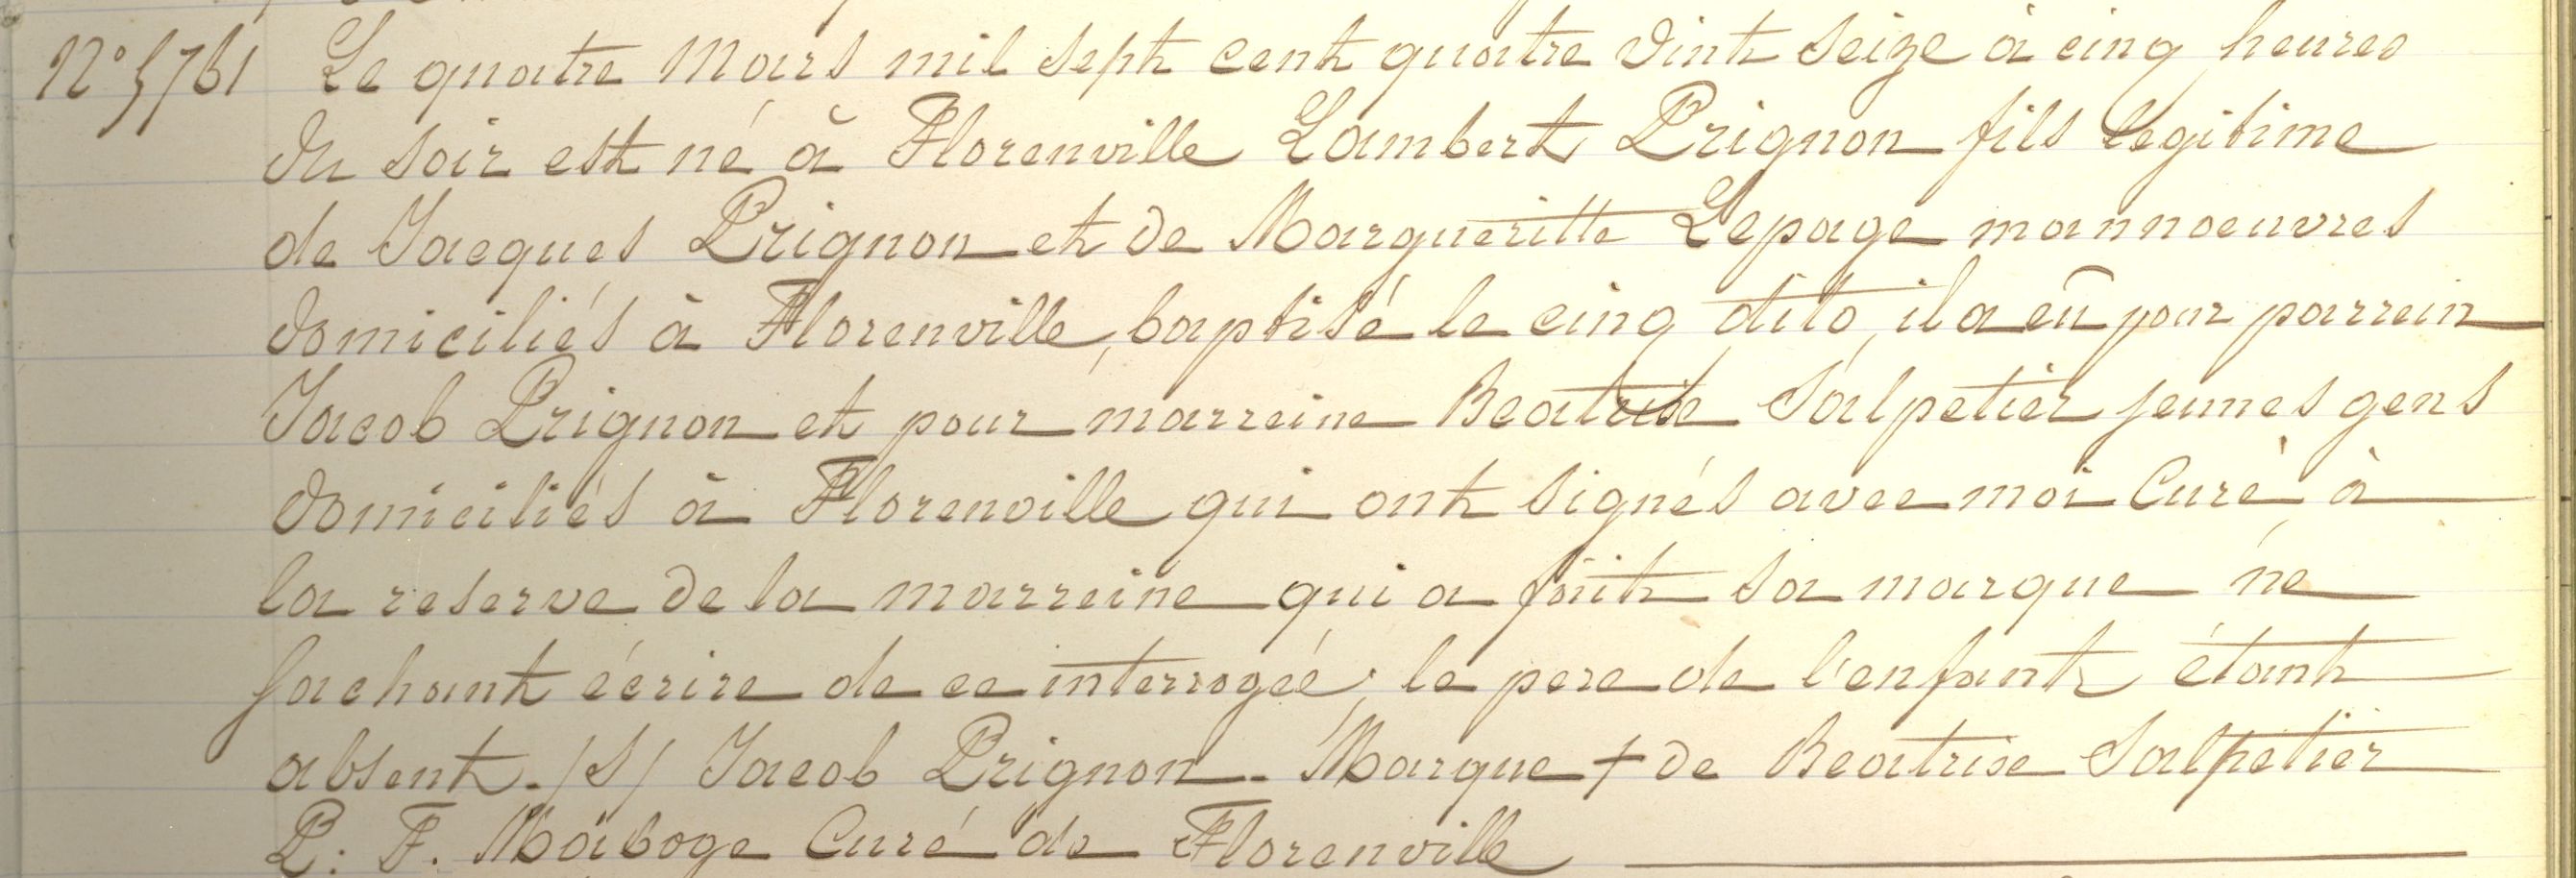 N° 5761 Le quatre Mars mil sept cent quatre vint seize à cinq heures
du soir est né à Florenville Lambert Prignon fils legitime
de Jacques Prignon et de Margueritte Lepage mannoeuvres
domiciliés à Florenville, baptisé le cinq dito, il a eû pour parrein
Jacob Prignon et pour marreine Beatrise Salpetier jeunes gens
domiciliés à Florenville qui ont signés avec moi Curé à
la reserve de la marreine qui a fait sa marque ne
sachant écrire de ce interrogée; le pere de l'enfant étant
absent. /S/ Jacob Prignon - Marque + de Beatrise Salpetier
P. F. Maboge Curé de Florenville